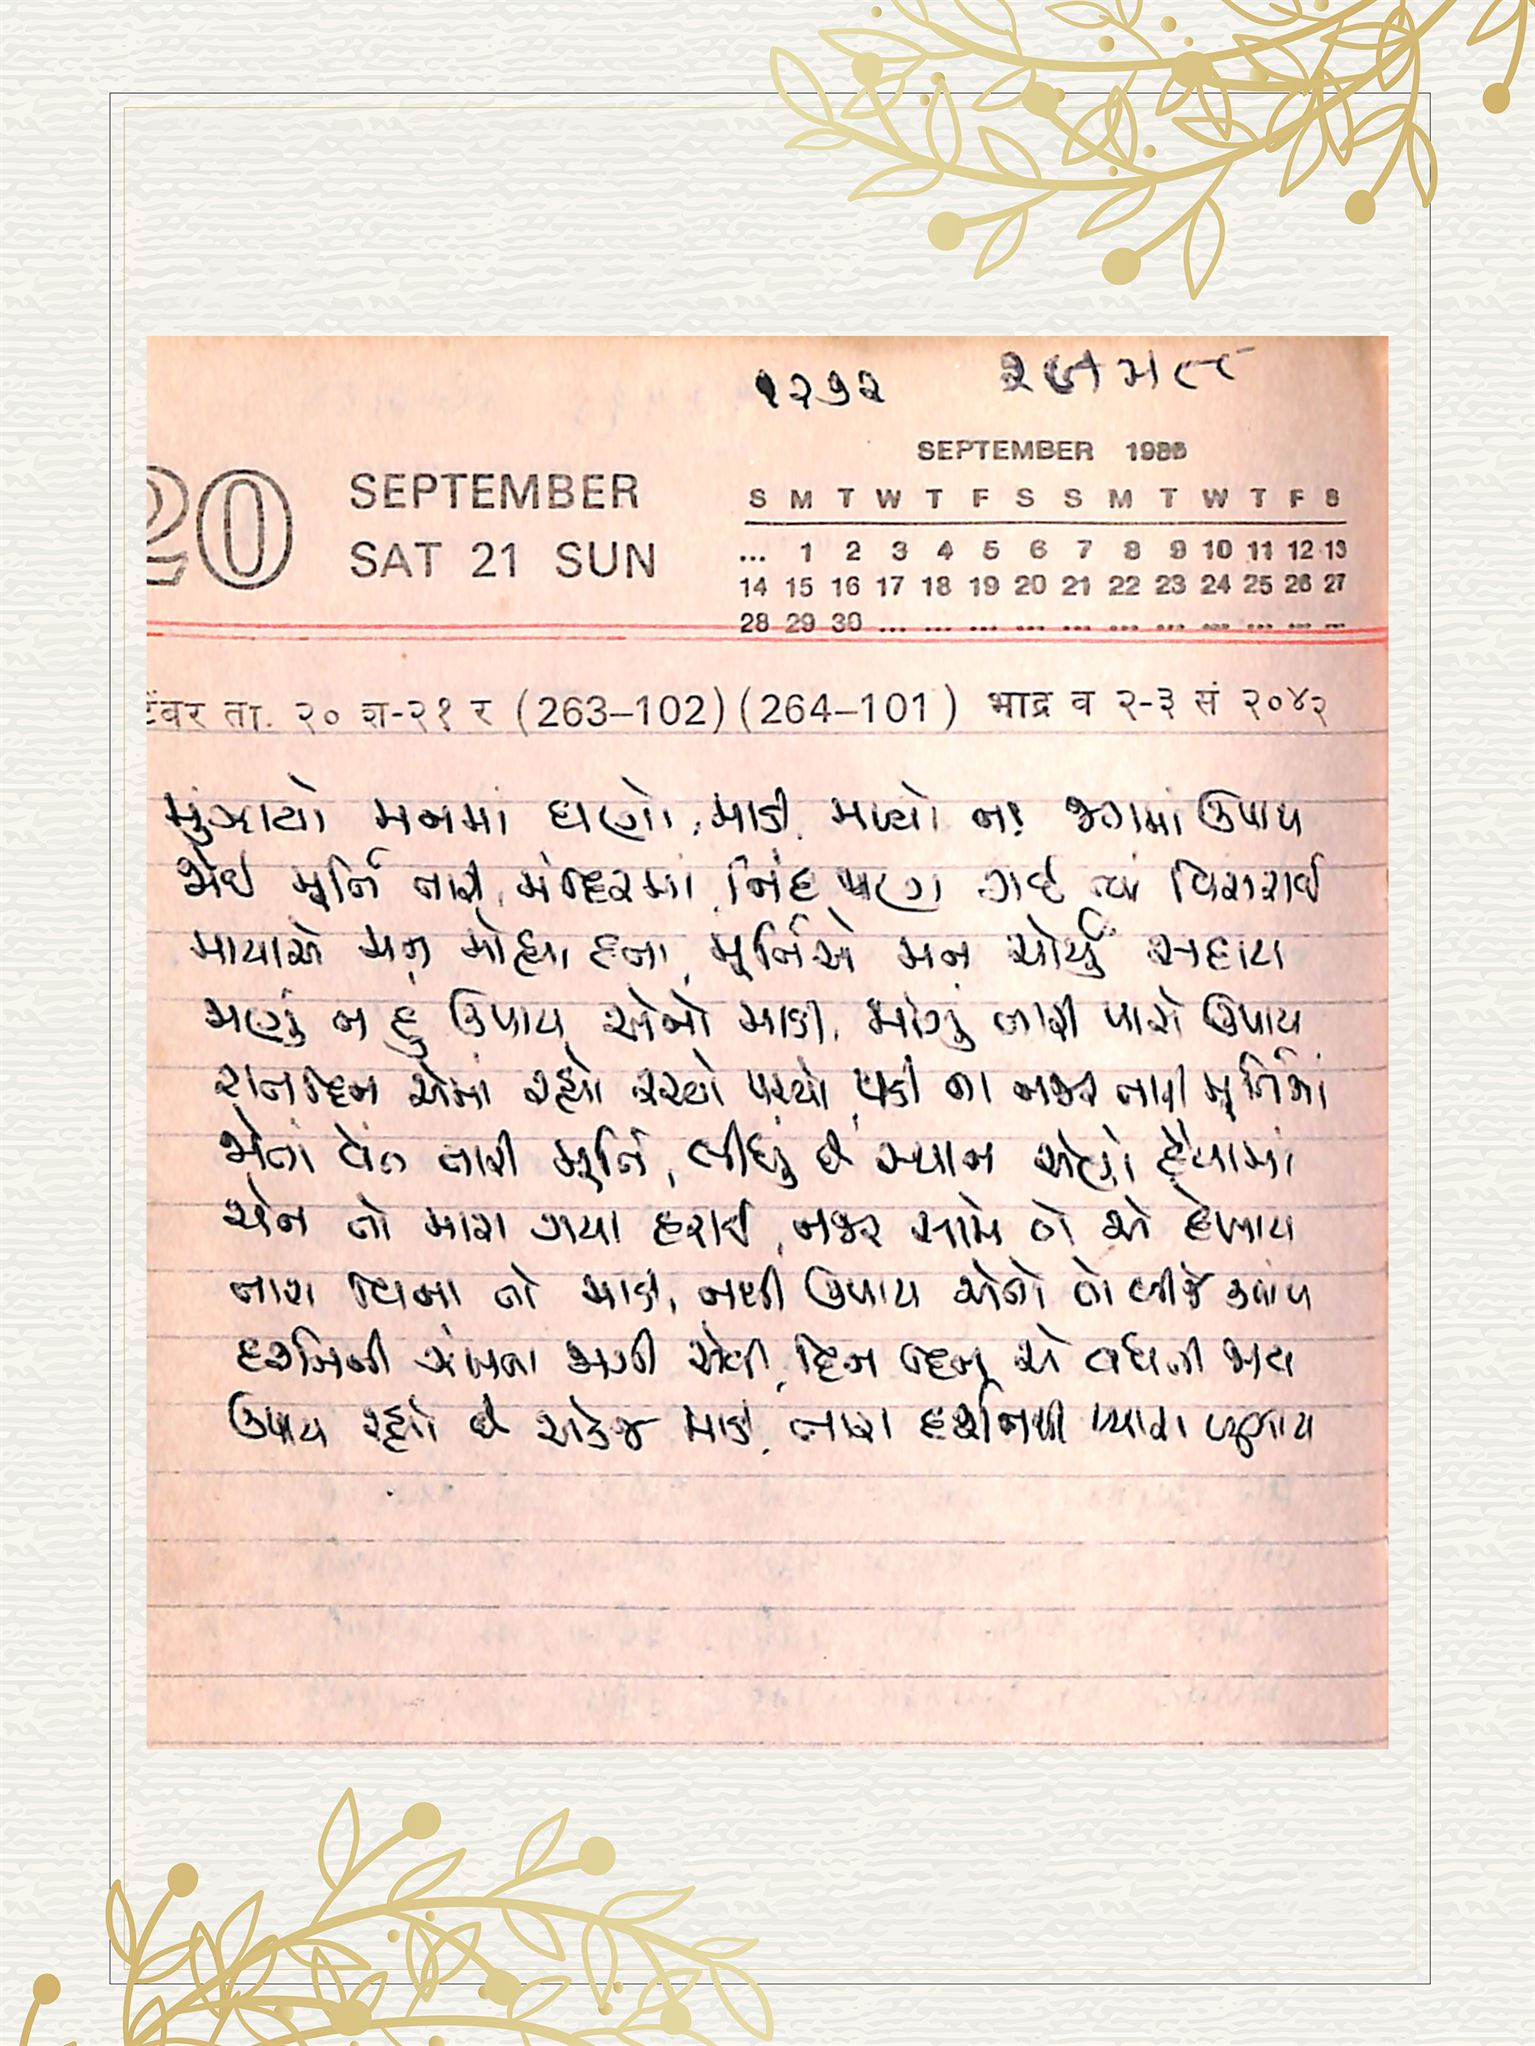 ૧૨૭૨
SEPTEMBER 1986
20 SEPTEMBER
SAT 21 SUN
S M T W T F S S M T W T F S
... 1 2 3 4 5 6 7 8 9 10 11 12 13
14 15 16 17 18 19 20 21 22 23 24 25 26 27
28 29 30 ... ... ... ... ... ... ... ... ... ... ...
टेंबर ता. २० श-२१ र (263–102) (264–101) भाद्र व २-३ सं २०४२
મુંઝાયો મનમાં ઘણો, માડી, મળ્યો ન જગમાં ઉપાય
જોઈ મૂર્તિ તારી મંદિરમાં, નિંદ પણ ગઈ ત્યાં વિસરાઈ
માયાએ મન મોહ્યા હતા, મૂર્તિએ મન ચોર્યું સદાય
જાણું ન હું ઉપાય એનો માડી, માંગું તારી પાસે ઉપાય
રાતદિન એમાં રહ્યો રચ્યો પચ્યો, પડી ના નજર તારી મૂર્તિમાં
જોતાં વેંત તારી મૂર્તિ, લીધું છે સ્થાન એણે હૈયામાં
ચેન તો મારા ગયા હરાઈ, નજર સામે તો એ દેખાય
તારા વિના તો માડી, નથી ઉપાય એનો તો બીજે ક્યાંય
દર્શનની ઝંખના જાગી એવી, દિન દિન એ વધતી જાય
ઉપાય રહ્યો છે એકજ માડી, તારા દર્શનથી પ્યાસ બુઝાય